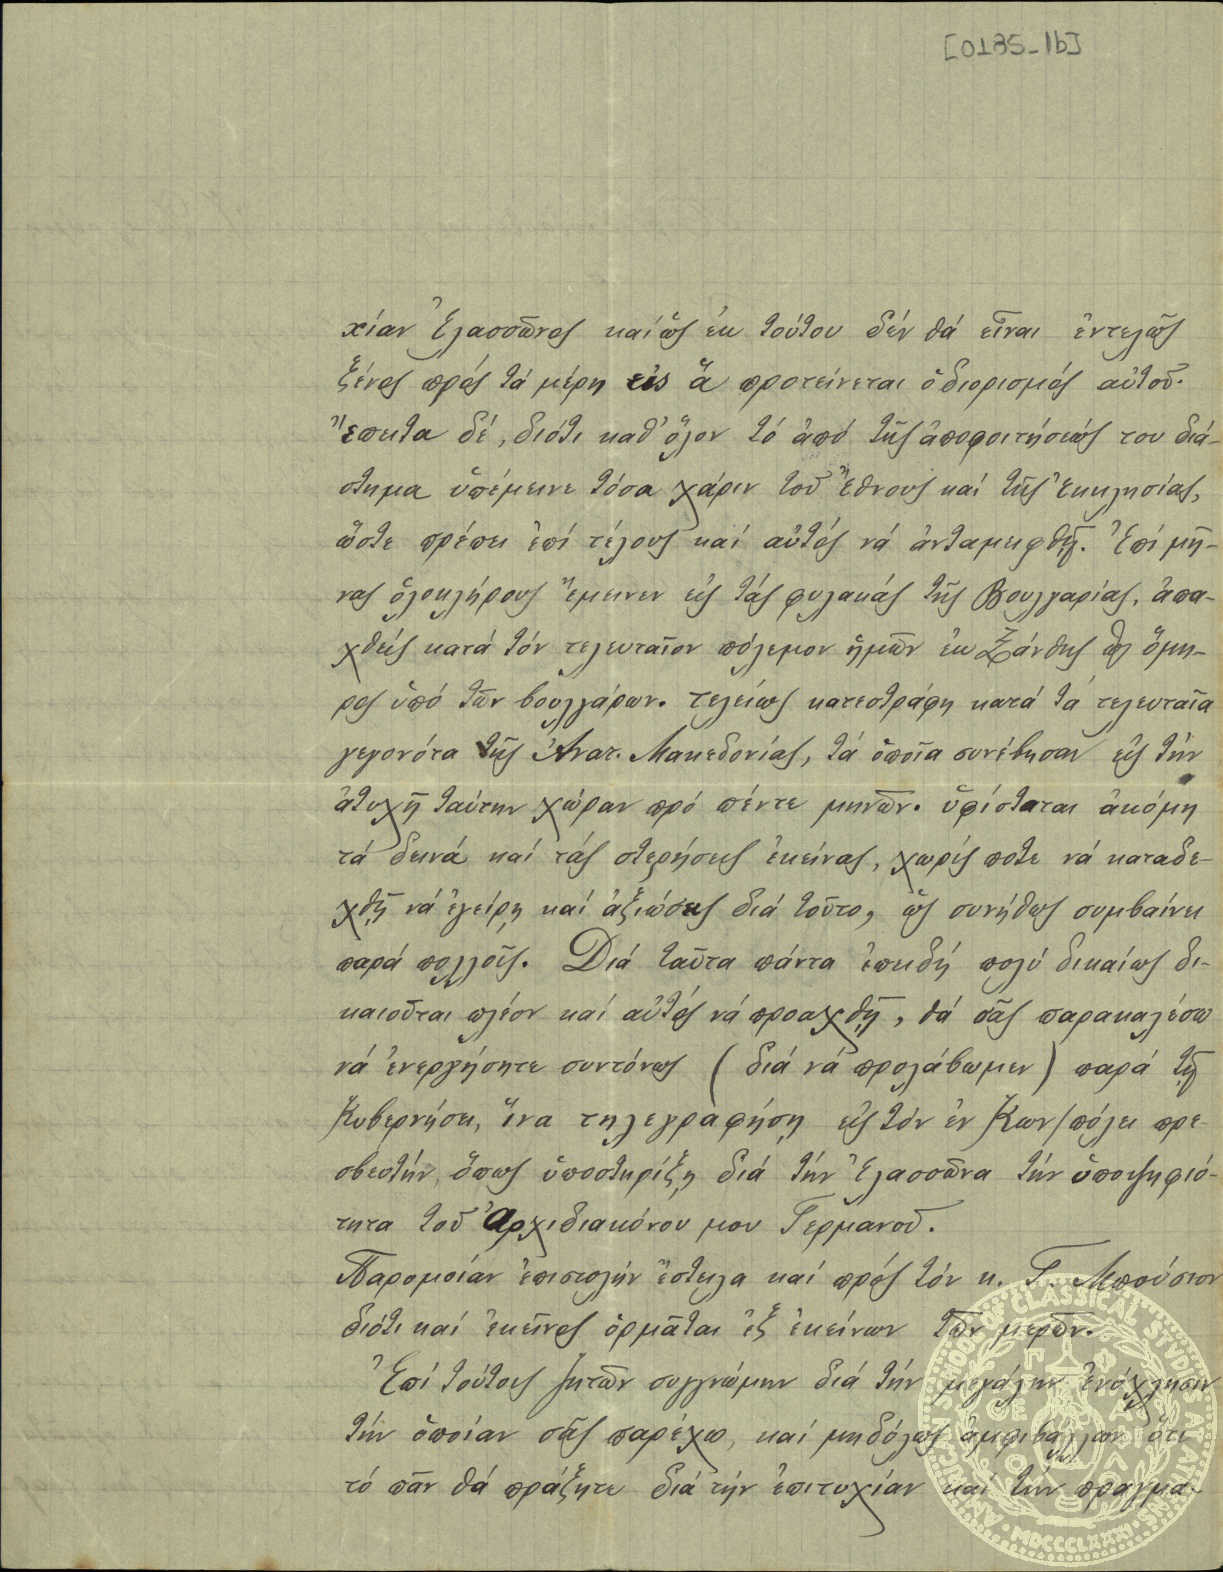 [0185-1b]
χίαν Ἐλασσῶνος καί ὡς ἐκ τούτου δέν θά εἶναι ἐντελῶς
ξένος πρός τά μέρη εἰς ἅ προτείνεται ὁ διορισμός αὐτοῦ.
Ἔπειτα δέ, διότι καθ' ὅλον τό ἀπό τῆς ἀποφοιτήσεώς του διά-
στημα ὑπέμεινε τόσα χάριν τοῦ Ἔθνους καί τῆς Ἐκκλησίας,
ὥστε πρέπει ἐπί τέλους καί αὐτός νά ἀνταμειφθῇ. Ἐπί μῆ-
νας ὁλοκλήρους ἔμεινεν εἰς τάς φυλακάς τῆς Βουλγαρίας, ἀπα-
χθείς κατά τόν τελευταῖον πόλεμον ἡμῶν ἐκ Ξάνθης ὡς ὅμη-
ρος ὑπό τῶν βουλγάρων. τελείως κατεστράφη κατά τά τελευταῖα
γεγονότα τῆς Ἀνατ. Μακεδονίας, τά ὁποῖα συνέβησαν εἰς τήν
ἀτυχῆ ταύτην χώραν πρό πέντε μηνῶν. ὑφίσταται ἀκόμη
τά δεινά καί τάς στερήσεις ἐκείνας, χωρίς ποτε νά καταδε-
χθῇ νά ἐγείρῃ καί ἀξιώσεις διά τοῦτο, ὡς συνήθως συμβαίνει
παρά πολλοῖς. Διά ταῦτα πάντα ἐπειδή πολύ δικαίως δι-
καιοῦται πλέον καί αὐτός νά προαχθῇ, θά σᾶς παρακαλέσω
νά ἐνεργήσητε συντόνως (διά νά προλάβωμεν) παρά τῇ
Κυβερνήσει, ἵνα τηλεγραφήσῃ εἰς τόν ἐν Κων/πόλει πρε-
σβευτήν, ὅπως ὑποστηρίξῃ διά τήν Ἐλασσῶνα τήν ὑποψηφιό-
τητα τοῦ Ἀρχιδιακόνου μου Γερμανοῦ.
Παρομοίαν ἐπιστολήν ἔστειλα καί πρός τόν κ. Γ. Μπούσιον
διότι καί ἐκεῖνος ὁρμᾶται ἐξ ἐκείνων τῶν μερῶν.
Ἐπί τούτοις ζητῶν συγγνώμην διά τήν μεγάλην ἐνόχλησιν
τήν ὁποίαν σᾶς παρέχω, καί μηδόλως ἀμφιβάλλων ὅτι
τό πᾶν θά πράξητε διά τήν ἐπιτυχίαν καί τήν πραγμα-
AMERICAN SCHOOL OF CLASSICAL STUDIES AT ATHENS · MDCCCLXXXI